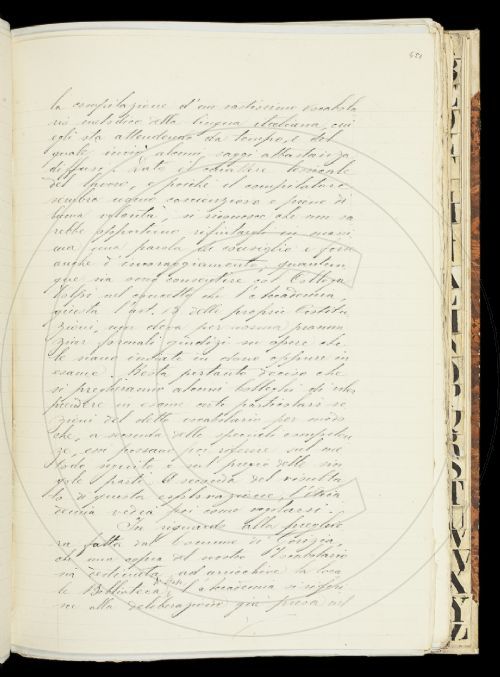 651
la compilazione d'un vastissimo Vocabola
rio metodico della lingua italiana, cui
egli sta attendendo da tempo, e del
quale inviò alcuni saggi abbastanza
diffusi. Dato il carattere
del lavoro, e poiché il compilatore
sembra uomo coscienzioso e pieno di
buona volontà, si riconosce che non sa
rebbe opportuno rifiutargli in massi
ma una parola di consiglio e forse
anche d'incoraggiamento, quantun
que sia uomo consentire col Collega
nel concetto che l'Accademia,
giusta l'art. 13 delle proprie Costitu
zioni, non debba per norma pronun
ziar formali giudizi su opere che
le siano inviate in dono oppure in
esame. Resta pertanto deciso che
si pregheranno alcuni Colleghi di
prendere in esame certe particolari se
zioni del detto vocabolario per modo
che, a seconda delle speciali competen
ze, essi possano poi riferire sul me
todo seguito e sul pregio delle sin
gole parti. A seconda del risulta
to di questa esplorazione, l'Acca
demia vedrà poi come regolarsi.
In riguardo alla preghie
ra fatta dal Comune di Gorizia,
che una copia del nostro Vocabolario
sia destinata ad arricchire la loca
le Biblioteca, l'Accademia si riferi
sce alla deliberazione già presa nel